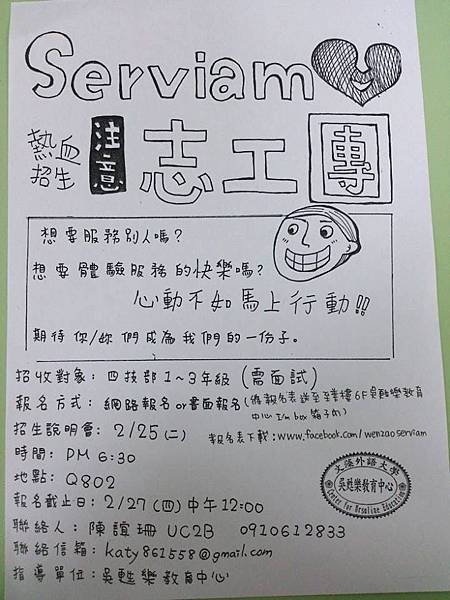 Serviam
熱血
招生
注意
志工團
想要服務別人嗎?
想要體驗服務的快樂嗎?
心動不如馬上行動!!
期待你/妳們成為我們的一份子。
招收對象: 四技部1~3年級 (需面試)
報名方式: 網路報名 or 書面報名 (繳報名表送至至善樓6F吳甦樂教育
中心 I'm box 箱子內)
招生說明會: 2/25 (二)
報名表下載: www.facebook.com/wenzaoserviam
時間: PM 6:30
地點: Q802
報名截止日: 2/27 (四) 中午12:00
聯絡人: 陳誼珊 UC2B 0910612833
聯絡信箱: katy861558@gmail.com
指導單位: 吳甦樂教育中心
文藻外語大學
吳甦樂教育中心
Center for Ursuline Education